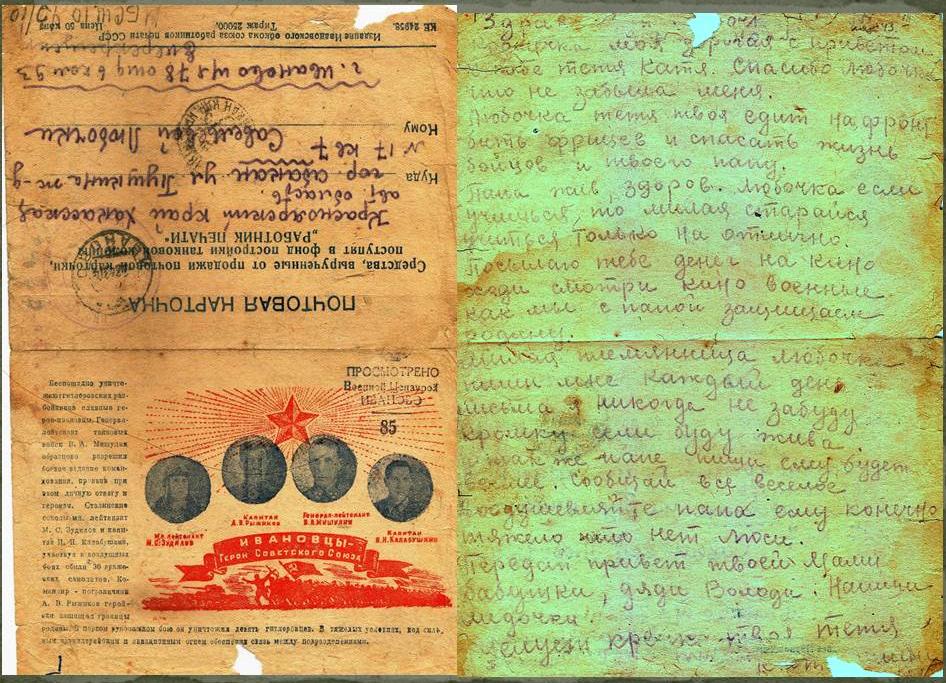 КЕ 24958.
Тираж 25000.
Цена 50 коп.
Издание Ивановского обкома союза работников печати СССР
г. Иваново п/я 78 отд 6 ком 93
Кому
Савельевой Любочки
N 17 кв 7
Куда
гор Абакан ул Пушкина
авт область
Красноярский край Хакасская
Средства, вырученные от продажи почтовой карточки,
поступят в фонд постройки танковой колонны
„РАБОТНИК ПЕЧАТИ“
ПОЧТОВАЯ КАРТОЧКА
ПРОСМОТРЕНО
Военной Цензурой
ИВАНОВО
85
Беспощадно уничто-
жают гитлеровских раз-
бойников славные ге-
рои-ивановцы. Генерал-
лейтенант танковых
войск В. А. Мишулин
образцово разрешил
боевое задание коман-
дования, проявив при
этом личную отвагу и
героизм. Сталинские
соколы мл. лейтенант
М. С. Зудилов и капи-
тан Калабушкин,
участвуя в воздушных
боях сбили вра-
жеских самолетов. Ко-
мандир - пограничник
А. В. Рыжиков герой-
ски защищал границы
родины. В первом рукопашном бою он уничтожил девять гитлеровцев. В тяжелых условиях, под силь-
ным артиллерийским и авиационным огнем обеспечил связь между подразделениями.
Мл. лейтенант
М.С. Зудилов
Капитан
А.В. Рыжиков
Генерал-лейтенант
В.А. Мишулин
Капитан
Калабушкин
ИВАНОВЦЫ-
Герои Советского Союза
Любочка моя дорогая с приветом
к тебе тетя Катя. Спасибо Любочка
что не забыла меня.
Любочка тетя твоя едит на фронт
бить фрицев и спасать жизнь
бойцов и твоего папу.
Папа жив, здоров. Любочка если
учишься, то милая старайся
учиться только на отлично.
Посылаю тебе денег на кино
ходи смотри кино военные
как мы с папой защищаем
родину.
Милая племянница Любочка
пиши мне каждый день
письма я никогда не забуду
крошку если буду жива
же папе пиши ему будет
Сообщай все веселое
папа ему конечно
тяжело нет Люси.
Передай привет твоей Мамы
бабушки, дяди Володи. Нашим
целую крепко твоя тетя